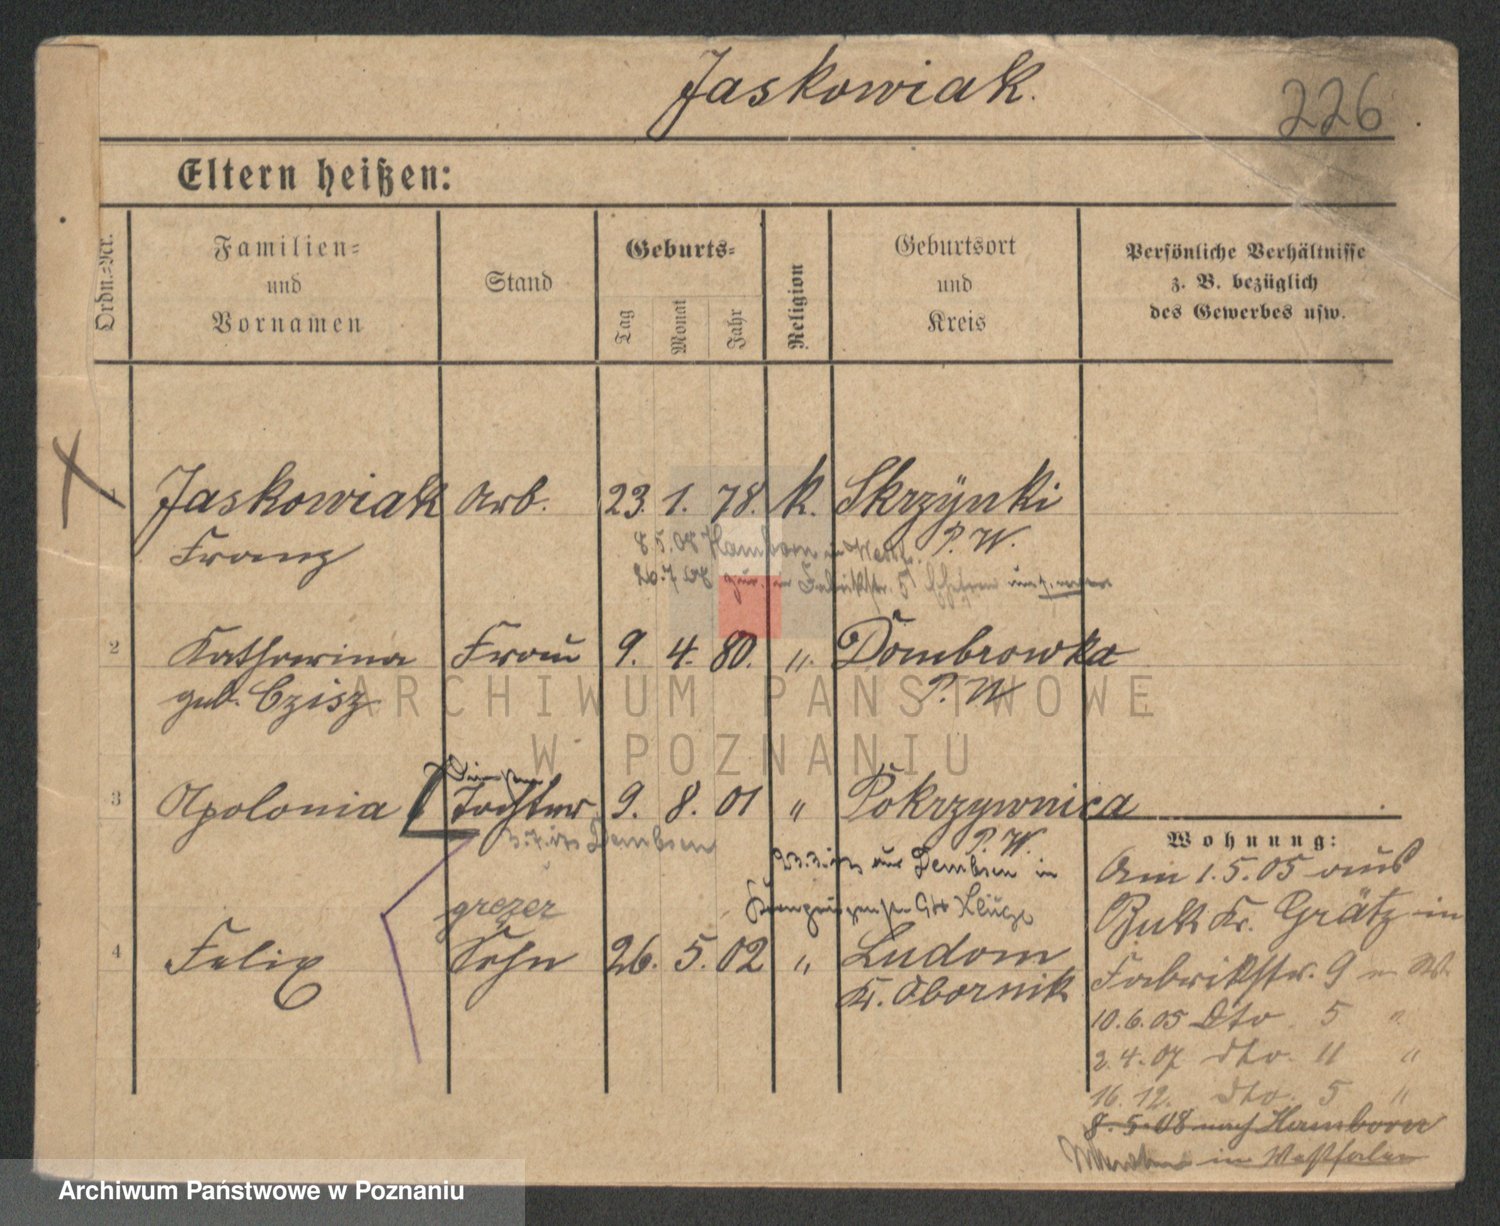 Jaskowiak.
226
Eltern heißen:
Ordn.=Nr.
Familien=
und
Vornamen
Stand
Geburts=
Tag
Monat
Jahr
Religion
Geburtsort
und
Kreis
Persönliche Verhältnisse
z. B. bezüglich
des Gewerbes usw.
1 Jaskowiak Arb. 23. 1. 78. k. Skrzynki
Franz P. W.
8.5.08 Hamborn in Westf.
26.7.08 zur. in Fabrikstr. 5
2 Katharina Frau 9. 4. 80. " Dombrowka
geb. Czisz P. W.
ARCHIWUM PAŃSTWOWE
W POZNANIU
Dienstm
3 Apolonia Tochter 9. 8. 01 " Pokrzywnica
P. W.
Dembsen
23.3. aus Dembsen in
grezer
4 Felix Sohn 26. 5. 02 " Ludom
Kr. Obornik
Wohnung:
Am 1.5.05 aus
Buk Kr. Grätz in
Fabrikstr. 9 n W.
10.6.05 Dto 5 "
2.4.07 dto. 11 "
16.12. dto. 5 "
8.5.08 nach Hamborn
in Westfalen
Archiwum Państwowe w Poznaniu